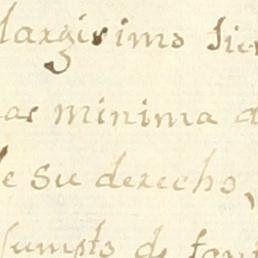 largisimo tie
as minima d
e su derecho,
sumpto de tant